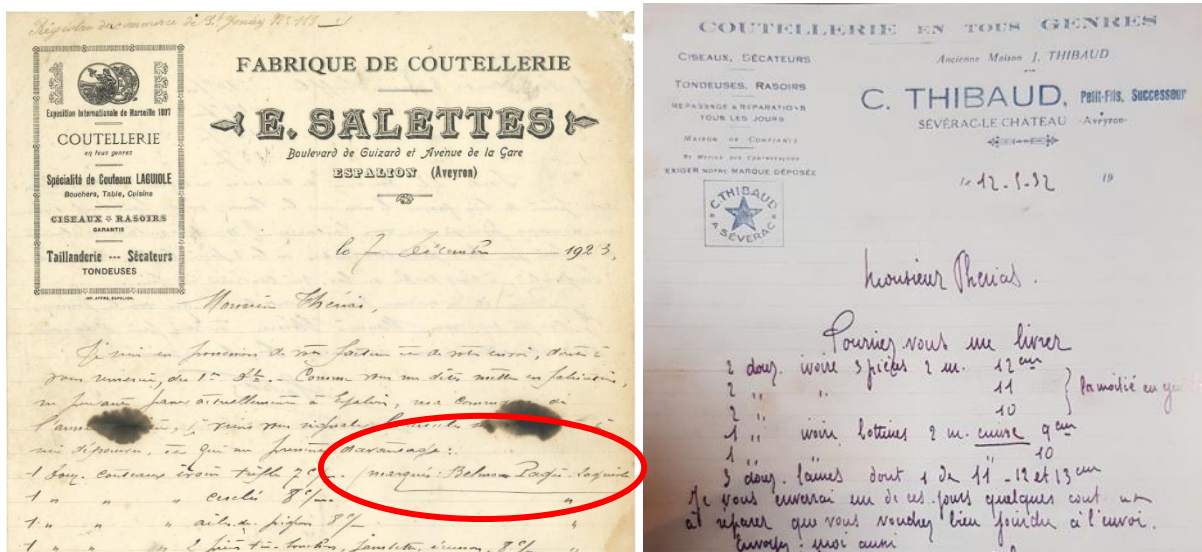 Registre du commerce de St Geniez No 113
Exposition Internationale de Marseille 1897
COUTELLERIE
en tous genres
Spécialité de Couteaux LAGUIOLE
Bouchers, Table, Cuisine
CISEAUX RASOIRS
GARANTIS
Taillanderie --- Sécateurs
TONDEUSES
IMP. AFFRE, ESPALION.
FABRIQUE DE COUTELLERIE
E. SALETTES
Boulevard de Guizard et Avenue de la Gare
ESPALION (Aveyron)
le 7 Décembre 1923,
Monsieur Thérias,
Je suis en possession de votre facture et de votre envoi, dont
vous remercie, du 1er Comme vous me dites mettre en fabrication,
actuellement à Espalion, ma commande de
je viens vous signaler
davantage:
1 douz. couteaux ivoire trèfle 7 c/m. marqués: Pagès Laguiole
1 " " " cerclés 8 c/m. "
1 " " " ailes de pigeon 8 c/m "
1 " " " 2 pièces tire-bouchon, 8 c/m "
COUTELLERIE EN TOUS GENRES
CISEAUX, SÉCATEURS
TONDEUSES, RASOIRS
REPASSAGE & RÉPARATIONS
TOUS LES JOURS
MAISON DE CONFIANCE
SE MÉFIER DES CONTREFAÇONS
EXIGER NOTRE MARQUE DÉPOSÉE
C. THIBAUD
A SÉVERAC
Ancienne Maison J. THIBAUD
C. THIBAUD, Petit-Fils, Successeur
SÉVÉRAC-LE-CHATEAU -Aveyron-
le 12-5-32 19
Monsieur Therias.
Pourriez vous me livrer
2 douz. ivoire 3 pièces 2 m. 12 cm
2 " " 11 la moitié en
2 " 10
1 " ivoire bottines 2 m. 9 cm
1 " 10
3 douz. lames dont 1 de 11 - 12 et 13 cm
Je vous enverrai un de ces jours quelques cout
à réparer que vous voudrez bien joindre à l'envoi.
Envoyez-moi aussi